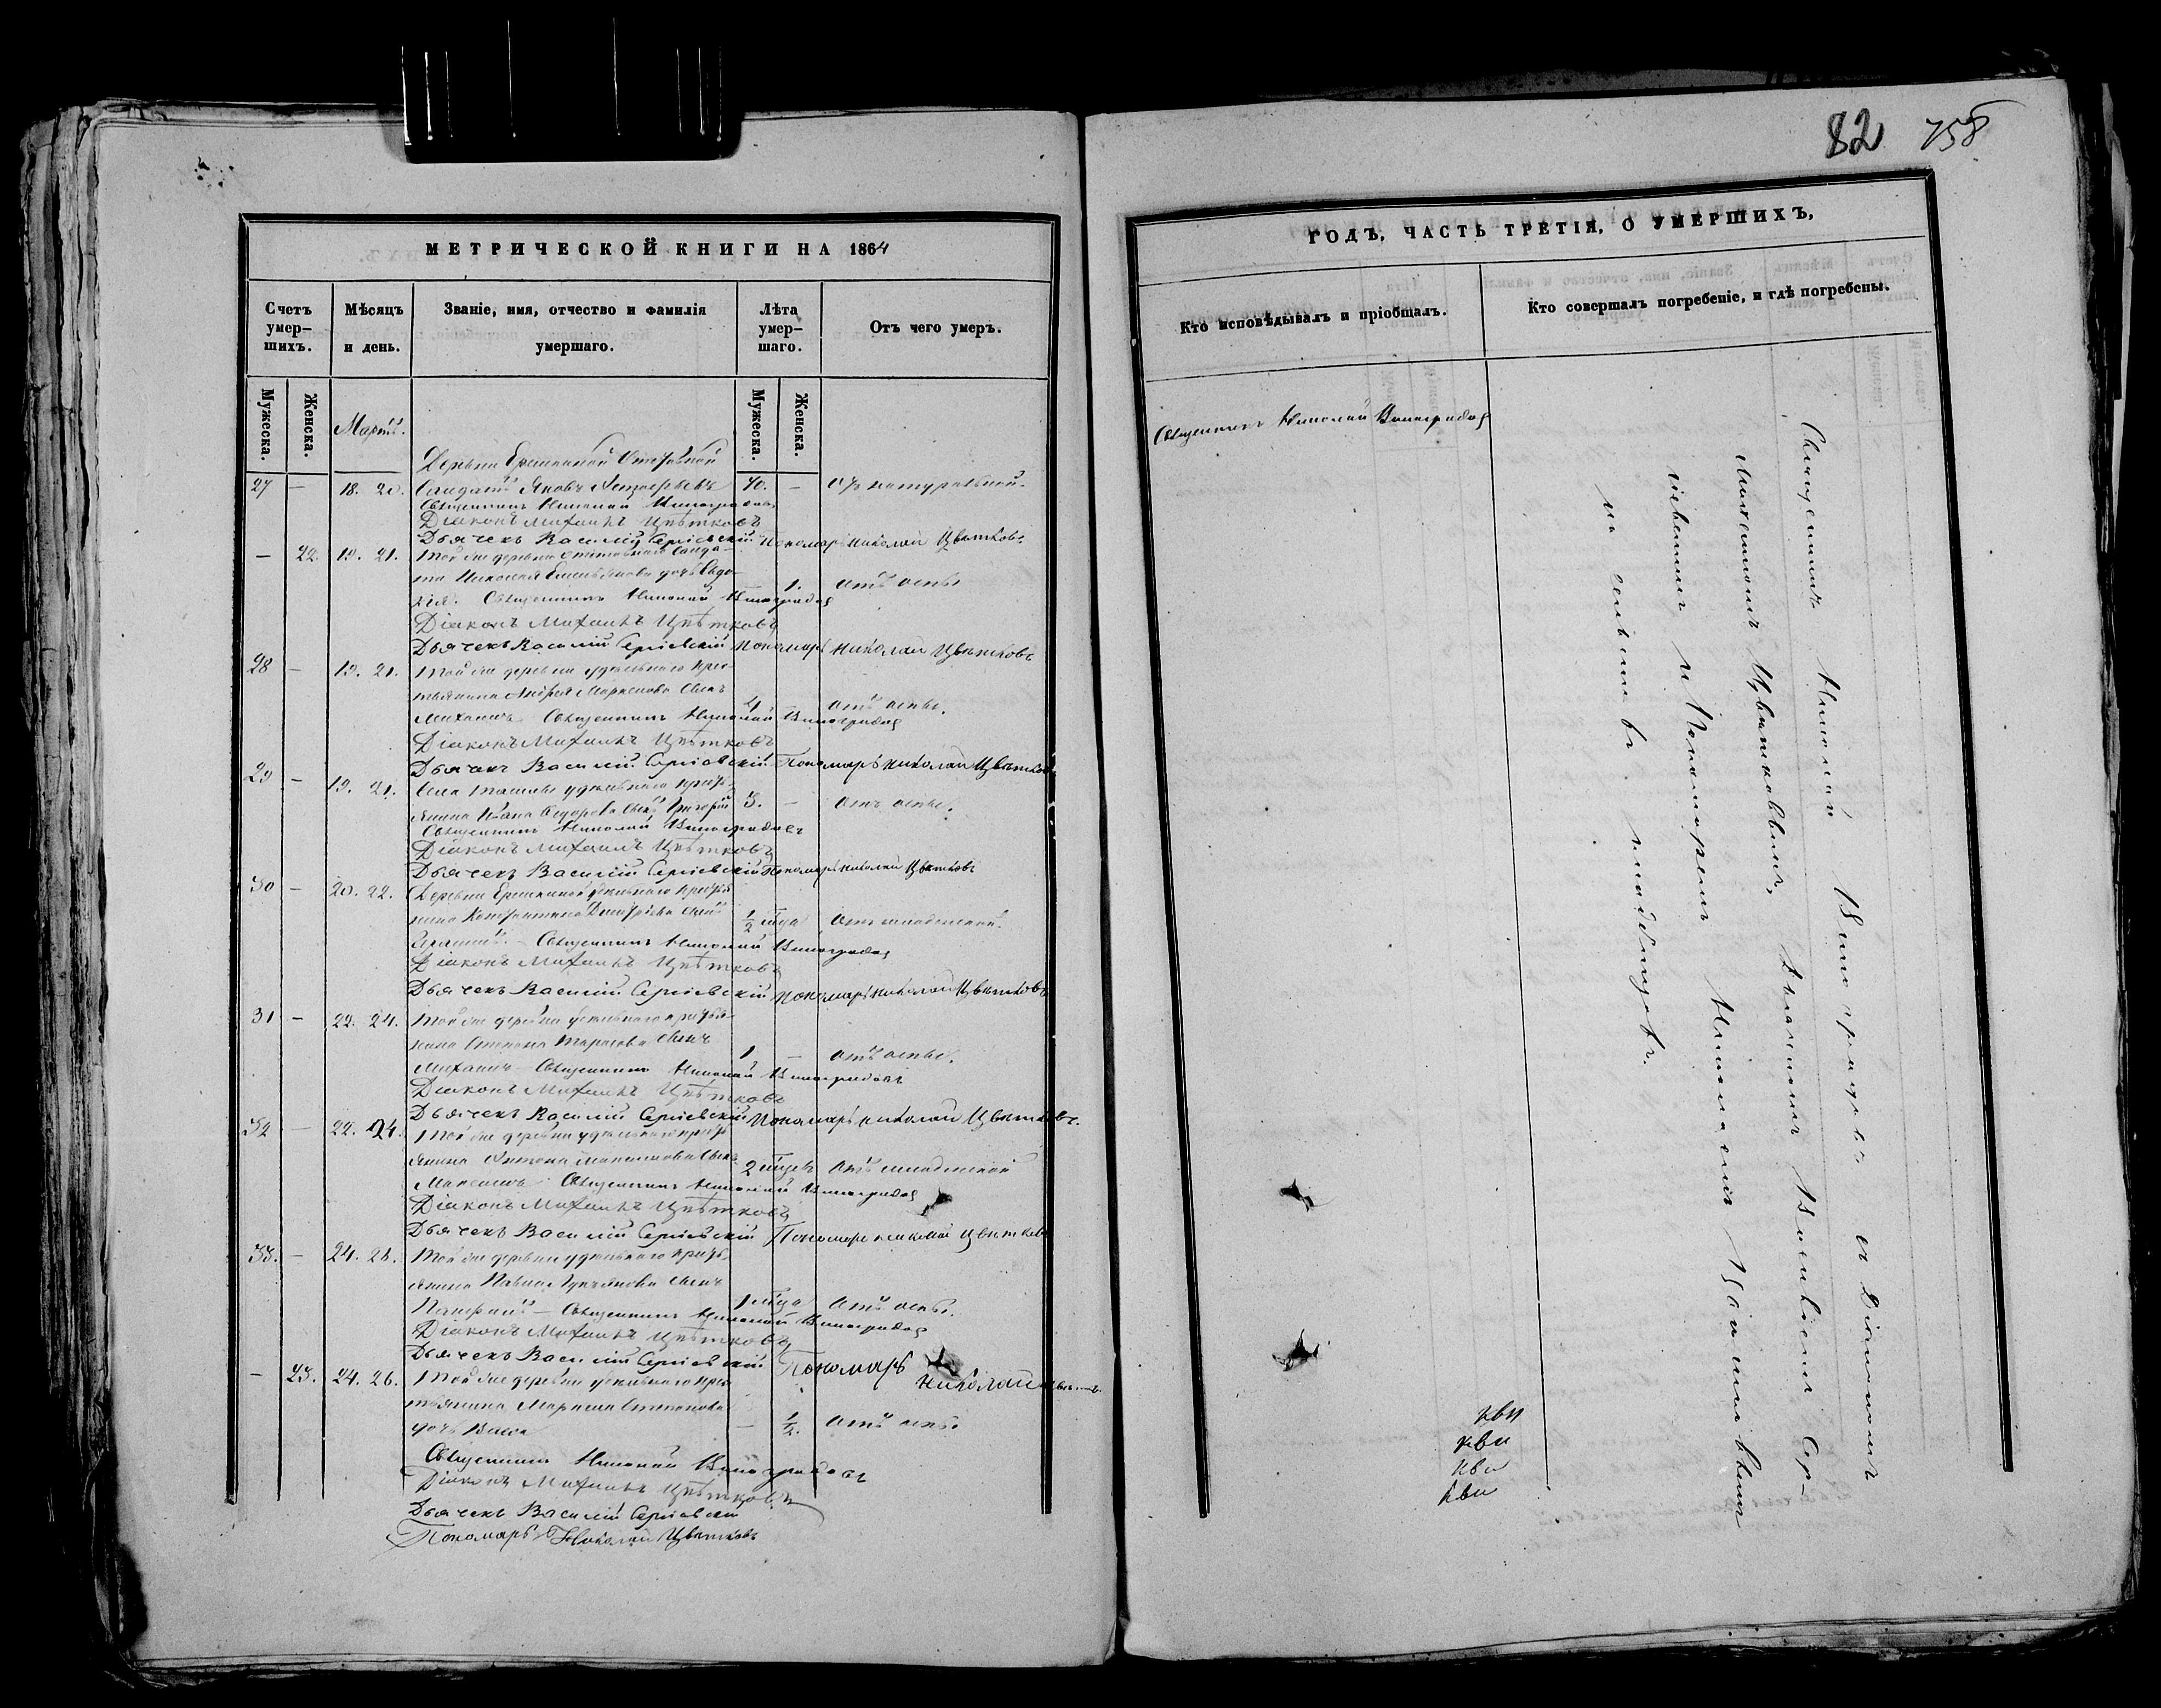 82 758
МЕТРИЧЕСКОЙ КНИГИ НА 1864
Счетъ умер-шихъ.
Мѣсяцъ и день.
Званіе, имя, отчество и фамилія умершаго.
Лѣта умер-шаго.
Отъ чего умеръ.
Мужеска.
Женска.
Мартъ.
Мужеска.
Женска.
Деревни Отставной
27 — 18. 20. Солдатъ Яковъ 70. — натуральной.
Священникъ Николай Виноградовъ
Діаконъ Михаилъ Цвѣтковъ
Дьячекъ Василій Сергіевскій Пономарь Николай Цвѣтковъ
— 22. 19. 21. Той же деревни отставнаго солда-
та Николая дочь Евдо-
кія. 1. отъ оспы
Священникъ Николай Виноградовъ
Діаконъ Михаилъ Цвѣтковъ
Дьячекъ Василій Сергіевскій Пономарь Николай Цвѣтковъ
28 — 19. 21. Той же деревни удѣльнаго крес-
тьянина Андрея сынъ
Михаилъ 4 отъ оспы.
Священникъ Николай Виноградовъ
Діаконъ Михаилъ Цвѣтковъ
Дьячекъ Василій Сергіевскій Пономарь Николай Цвѣтковъ
29 — 19. 21. Села удѣльнаго кресть-
янина Ивана Ѳедорова сынъ Григорій 3. — отъ оспы.
Священникъ Николай Виноградовъ
Діаконъ Михаилъ Цвѣтковъ
Дьячекъ Василій Сергіевскій Пономарь Николай Цвѣтковъ
30 — 20. 22. Деревни удѣльнаго крестья-
нина Константина Дмитріева сынъ
1/2 года отъ младенской.
Священникъ Николай Виноградовъ
Діаконъ Михаилъ Цвѣтковъ
Дьячекъ Василій Сергіевскій Пономарь Николай Цвѣтковъ
31 — 22. 24. Той же деревни удѣльнаго крестья-
нина Степана Тарасова сынъ
Михаилъ 1 — отъ оспы.
Священникъ Николай Виноградовъ
Діаконъ Михаилъ Цвѣтковъ
Дьячекъ Василій Сергіевскій Пономарь Николай Цвѣтковъ.
32 — 22. 24. Той же деревни удѣльнаго кресть-
янина Антона сынъ
Максимъ 2 отъ младенской
Священникъ Николай Виноградовъ
Діаконъ Михаилъ Цвѣтковъ
Дьячекъ Василій Сергіевскій Пономарь Николай Цвѣтковъ
33. — 24. 26. Той же деревни удѣльнаго кресть-
янина Павла Лукьянова сынъ
1 года отъ оспы.
Священникъ Николай Виноградовъ
Діаконъ Михаилъ Цвѣтковъ
Дьячекъ Василій Сергіевскій Пономарь Николай Цвѣтковъ
— 23. 24. 26. Той же деревни удѣльнаго крес-
тьянина Степанова
дочь — 1/2. отъ оспы
Священникъ Николай Виноградовъ
Діаконъ Михаилъ Цвѣтковъ
Дьячекъ Василій Сергіевскій
Пономарь Николай Цвѣтковъ
ГОДЪ, ЧАСТЬ ТРЕТІЯ, О УМЕРШИХЪ,
Кто исповѣдывалъ и пріобщалъ.
Кто совершалъ погребеніе, и гдѣ погребены.
Священникъ Николай Виноградовъ
Священникъ Николай Виноградовъ съ Діакономъ
Михаиломъ Цвѣтковымъ, Василіемъ Сер-
гіевскимъ и Пономаремъ Николаемъ
на кладбищѣ.